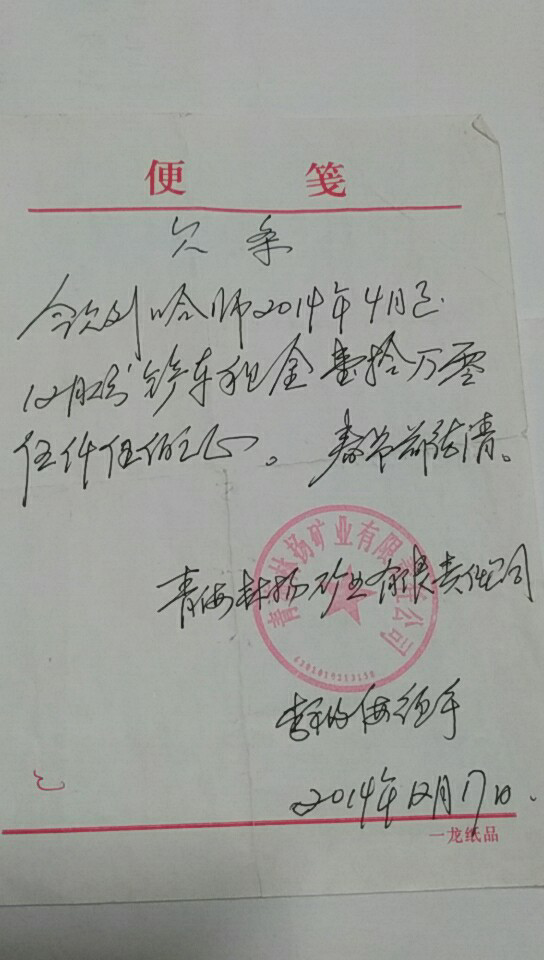 便 笺
欠 条
今欠到哈师2014年4月至
12月份铲车租金壹拾万零
伍仟伍佰元正。春节前结清。
青海林扬矿业有限责任公司
海经手
2014年12月17日.
一龙纸品